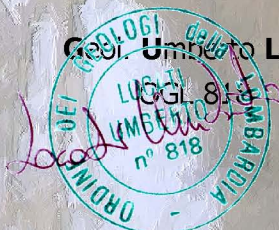 Geol. Umberto L
OGL 818
ORDINE DEI GEOLOGI della LOMBARDIA
LOCATI
UMBERTO
n° 818